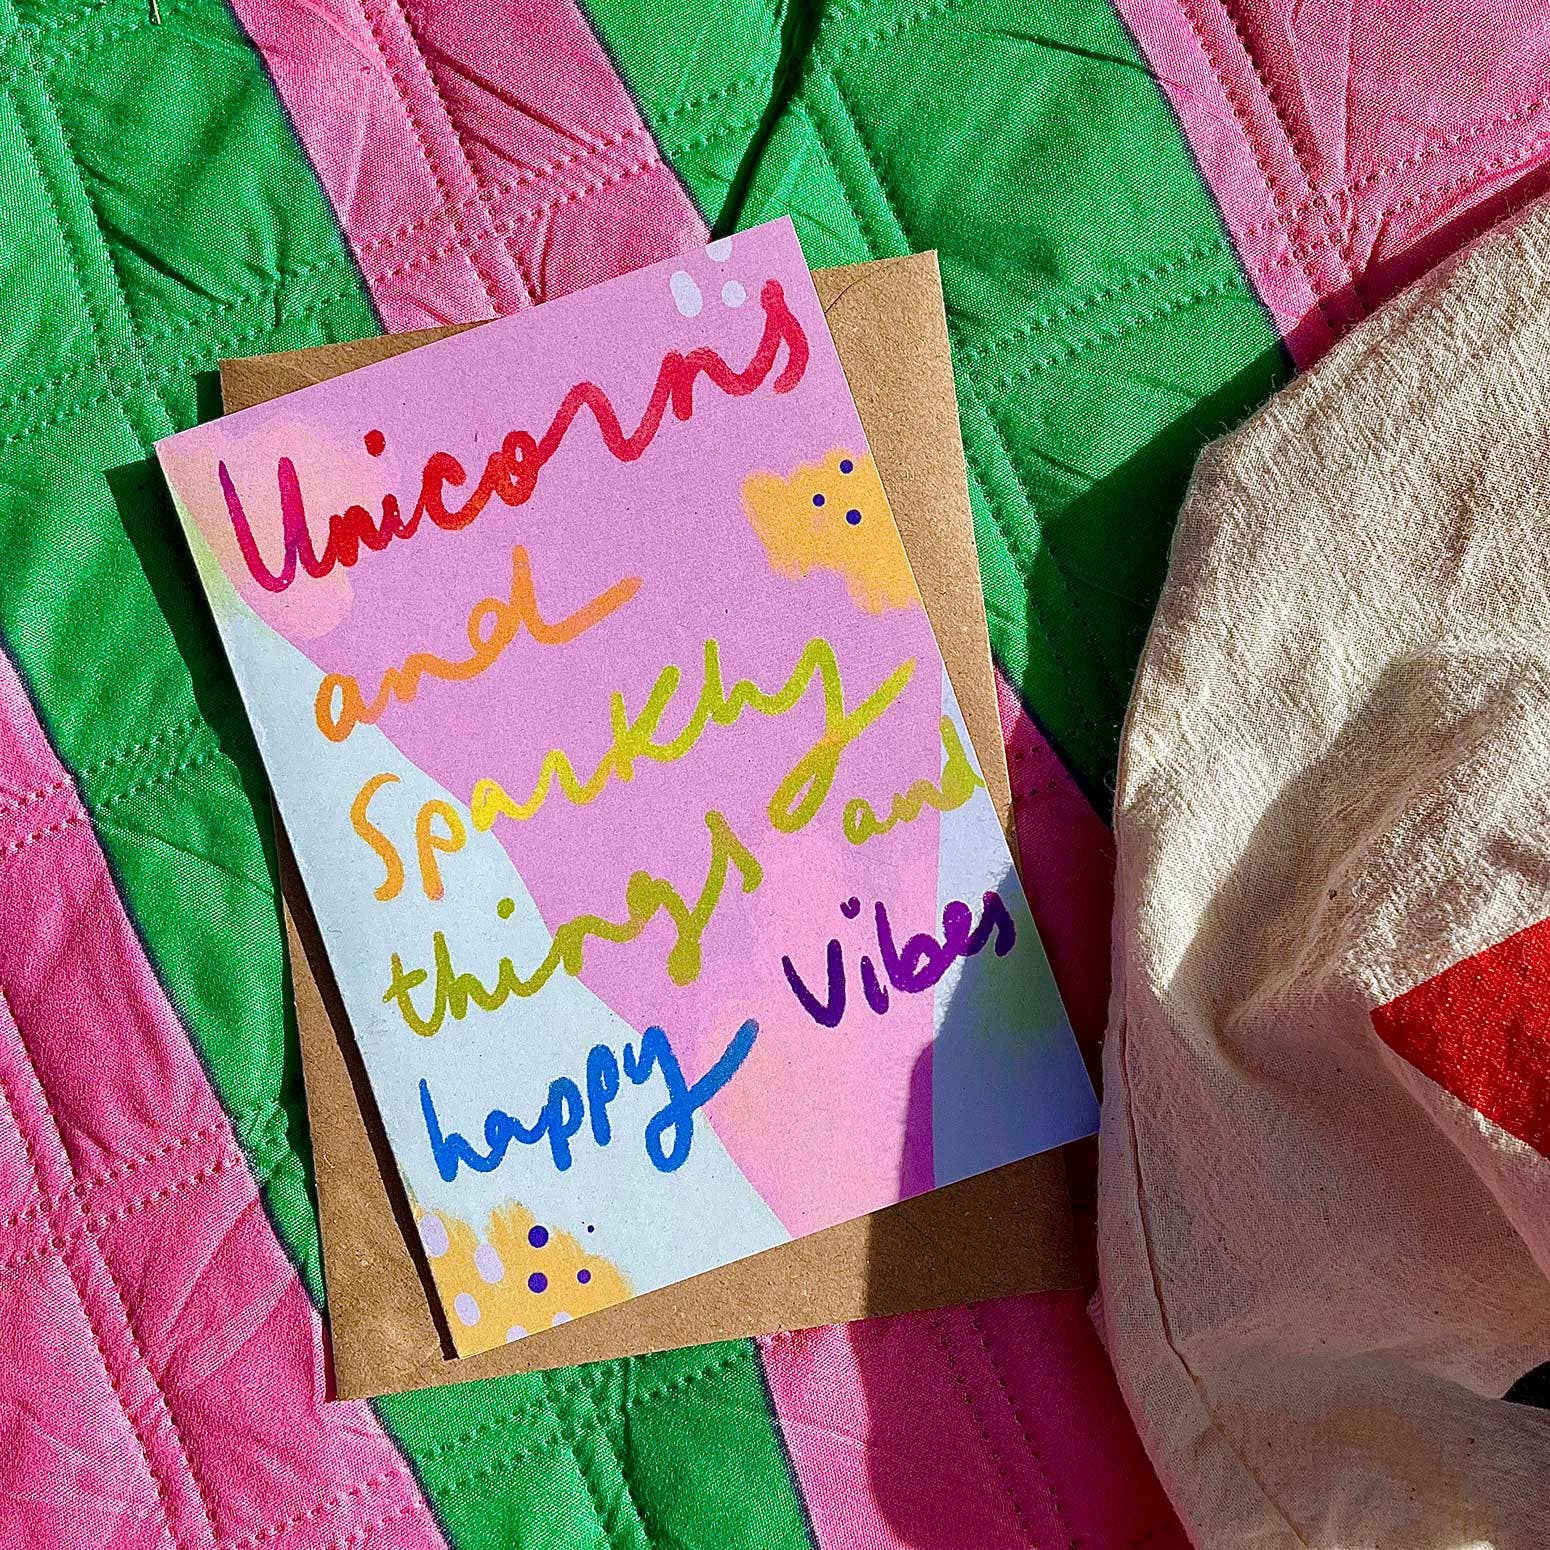 Unicorns
and
Sparkly
things and
happy vibes